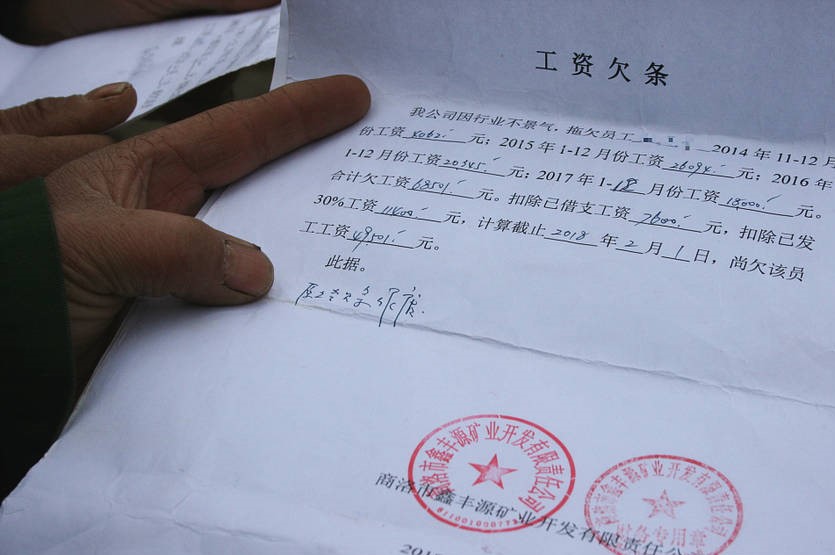 工资欠条
我公司因行业不景气，拖欠员工 2014年11-12月
份工资4062元；2015年1-12月份工资26094元；2016年
1-12月份工资20345元；2017年1-18月份工资18000元。
合计欠工资68501元。扣除已借支工资7600元，扣除已发
30%工资11400元，计算截止2018年2月1日，尚欠该员
工工资49501元。
此据。
商洛市鑫丰源矿业开发有限责任公司
商洛市鑫丰源矿业开发有限责任公
商洛市鑫丰源矿业开发有限责任公司
财务专用章